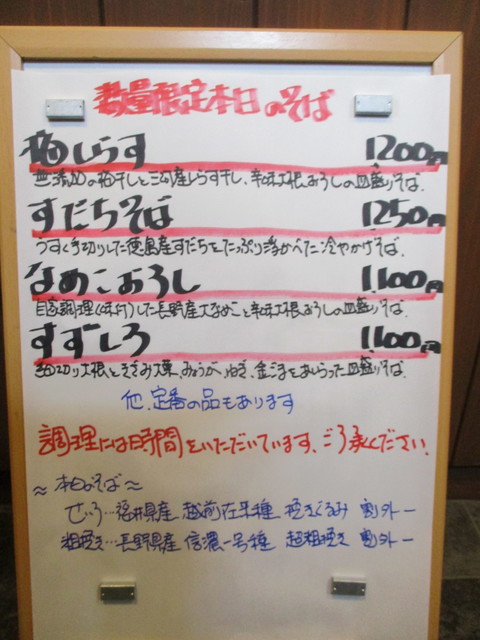 数量限定本日のそば
梅しらす 1200円
無添加の梅干しと三河産しらす干し、辛味大根おろしの皿盛りそば。
すだちそば 1250円
うすく手切りした徳島産すだちをたっぷり浮かべた冷やかけそば。
なめこおろし 1,100円
自家調理(味付)した長野産大なめこと辛味大根おろしの皿盛りそば。
すずしろ 1,100円
細切り大根とささみ、大葉、みょうが、ねぎ、金ごまをあしらった皿盛りそば。
他、定番の品もあります
調理には時間をいただいています、ご了承ください。
〜本日のそば〜
せいろ…福井県産 越前在来種 挽きぐるみ 外一
粗挽き…長野県産 信濃一号種 超粗挽き 外一